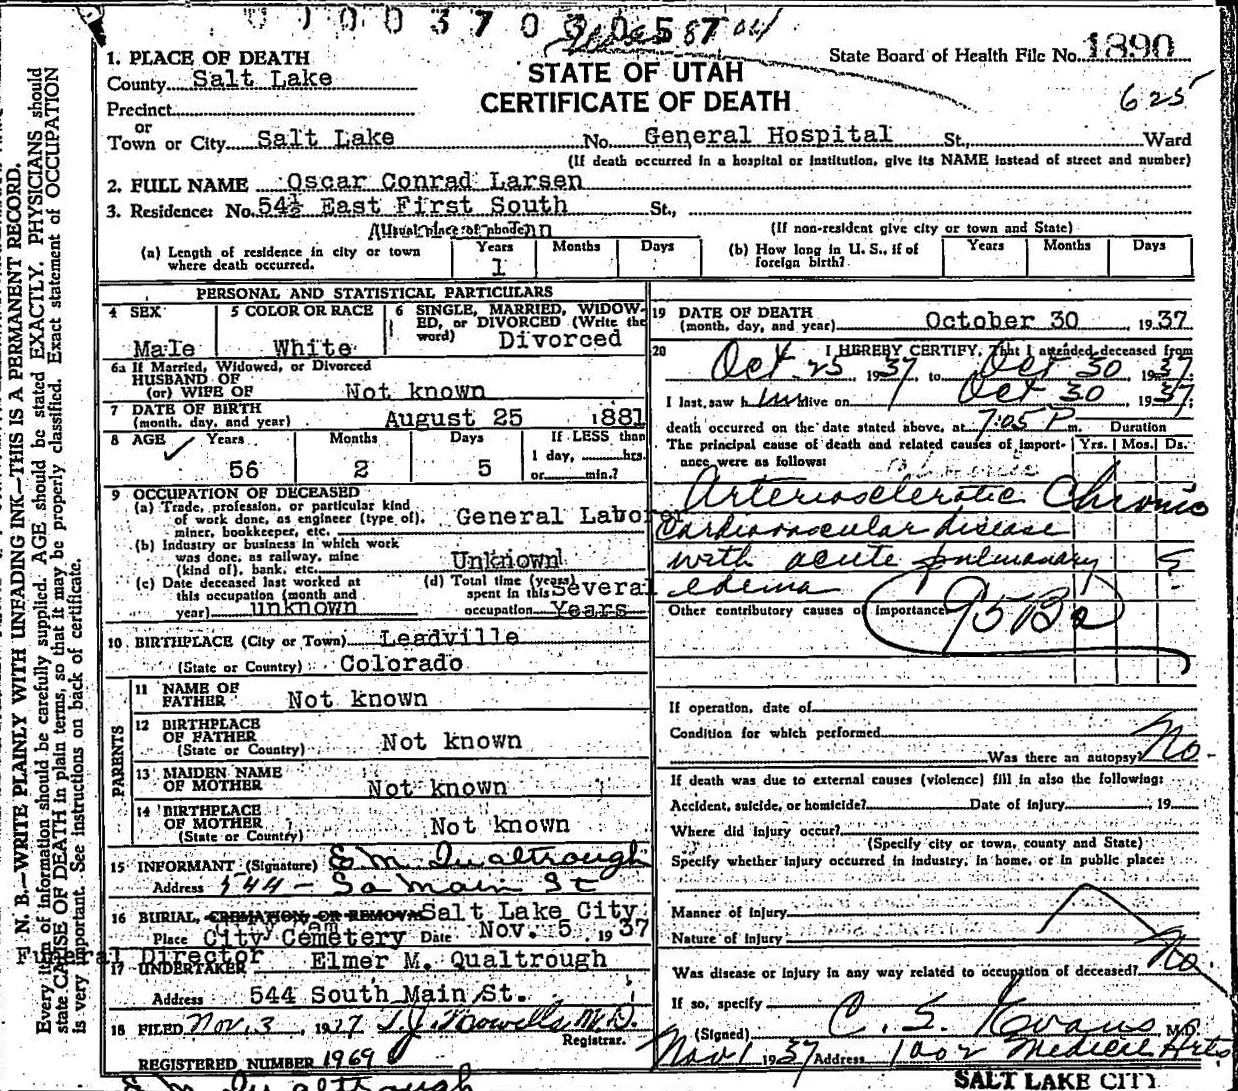 0 0 0 3 7 0 3 0 5 8 7 04
1. PLACE OF DEATH
State Board of Health File No. 1890
County Salt Lake
STATE OF UTAH
625
Precinct
CERTIFICATE OF DEATH
or
Town or City Salt Lake No. General Hospital St., Ward
(If death occurred in a hospital or institution, give its NAME instead of street and number)
2. FULL NAME Oscar Conrad Larsen
3. Residence: No. 54½ East First South St.,
(Usual place of abode) (If non-resident give city or town and State)
(a) Length of residence in city or town where death occurred. Years 1 Months Days (b) How long in U. S., if of foreign birth? Years Months Days
PERSONAL AND STATISTICAL PARTICULARS
4 SEX Male
5 COLOR OR RACE White
6 SINGLE, MARRIED, WIDOWED, or DIVORCED (Write the word) Divorced
6a If Married, Widowed, or Divorced
HUSBAND OF
(or) WIFE OF Not known
7 DATE OF BIRTH
(month, day, and year) August 25 1881
8 AGE Years 56 Months 2 Days 5 If LESS than 1 day, hrs. or min.?
9 OCCUPATION OF DECEASED
(a) Trade, profession, or particular kind of work done, as engineer (type of), miner, bookkeeper, etc. General Laborer
(b) Industry or business in which work was done as railway, mine (kind of), bank, etc. Unknown
(c) Date deceased last worked at this occupation (month and year) unknown
(d) Total time (years) spent in this occupation Several Years
10 BIRTHPLACE (City or Town) Leadville
(State or Country) Colorado
PARENTS
11 NAME OF FATHER Not known
12 BIRTHPLACE OF FATHER (State or Country) Not known
13 MAIDEN NAME OF MOTHER Not known
14 BIRTHPLACE OF MOTHER (State or Country) Not known
15 INFORMANT (Signature) E M Qualtrough
Address 544 - So Main St
16 BURIAL, CREMATION OR REMOVAL Salt Lake City
Place City Cemetery Date Nov. 5, 1937
Funeral Director
17 UNDERTAKER Elmer M. Qualtrough
Address 544 South Main St.
18 FILED Nov. 3, 1937 T. J. Howells M.D.
Registrar.
REGISTERED NUMBER 1969
E M Qualtrough
19 DATE OF DEATH
(month, day, and year) October 30 1937
20 I HEREBY CERTIFY, That I attended deceased from
Oct 25 1937 to Oct 30 1937
I last saw him alive on Oct 30 1937
death occurred on the date stated above, at 7:05 P m. Duration
The principal cause of death and related causes of importance were as follows: Yrs. Mos. Ds.
Arteriosclerotic Chronic
Cardiovascular disease
with acute pulmonary 5
edema
Other contributory causes of importance
If operation, date of
Condition for which performed
Was there an autopsy No.
If death was due to external causes (violence) fill in also the following:
Accident, suicide, or homicide? Date of injury , 19
Where did injury occur?
(Specify city or town, county and State)
Specify whether injury occurred in industry, in home, or in public place:
Manner of injury
Nature of injury
Was disease or injury in any way related to occupation of deceased? No.
If so, specify
(Signed) C. S. Evans M.D.
Nov 1 1937 Address 1002 Medical Arts
SALT LAKE CITY
N. B.—WRITE PLAINLY WITH UNFADING INK—THIS IS A PERMANENT RECORD.
Every item of information should be carefully supplied. AGE should be stated EXACTLY. PHYSICIANS should
state CAUSE OF DEATH in plain terms, so that it may be properly classified. Exact statement of OCCUPATION
is very important. See instructions on back of certificate.